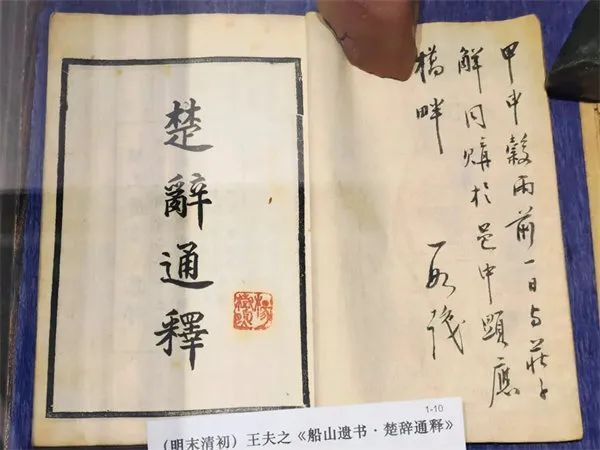 甲申穀雨前一日与莊子
解同購於邑中顯應
橋畔
識
楚辭通釋
1-10
（明末清初）王夫之《船山遗书·楚辞通释》